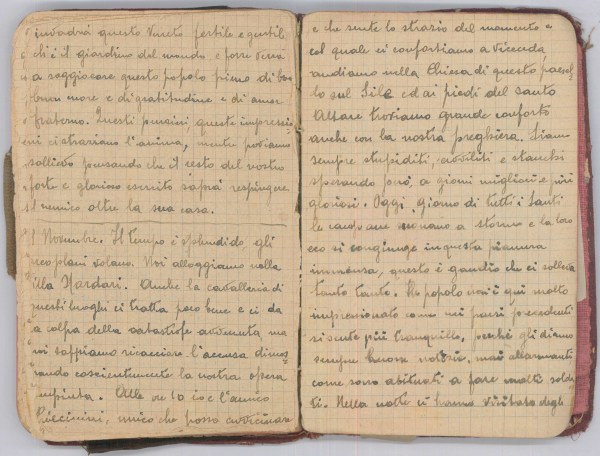 invadrà questo Veneto fertile e gentil
ch'è il giardino del mondo e forse verrà
a soggiocare questo popolo pieno di bon
buon more e di gratitudine e di amor
fraterno. Questi pensieri queste impressio
ni ci straziano l'anima, mentre proviamo
sollievo pensando che il resto del nostro
forte e glorioso esercito saprà respingere
il nemico oltre la sua casa.
1 Novembre. Il tempo è splendido, gli
areoplani volano. Noi alloggiamo nella
Villa Nardari. Anche la cavalleria di
questi luoghi ci tratta poco bene e ci dà
la colpa della catastrofe avvenuta, ma
noi sappiamo ricacciare l'accusa dimos
trando coscientemente la nostra opera
compiuta. Alle ore 10 con l'amico
Piccinini, unico che posso avvicinare
e che sente lo strazio del momento e
col quale ci confortiamo a vicenda
andiamo nella Chiesa di questo paesel
lo sul Sile ed ai piedi del santo
Altare troviamo grande conforto
anche con la nostra preghiera. Siamo
sempre stupiditi, avviliti e stanchi
sperando però, a giorni migliori e più
gloriosi. Oggi, giorno di tutti i Santi
le campane suonano a stormo e la loro
eco si congiunge in questa pianura
immensa, questo è gaudio che ci solleva
tanto tanto. Il popolo non è qui molto
impressionato come nei paesi precedenti
si sente più tranquillo, perché gli diamo
sempre buone notizie, mai allarmanti
come sono abituati a fare molti solda
ti. Nella notte ci hanno visitato degli